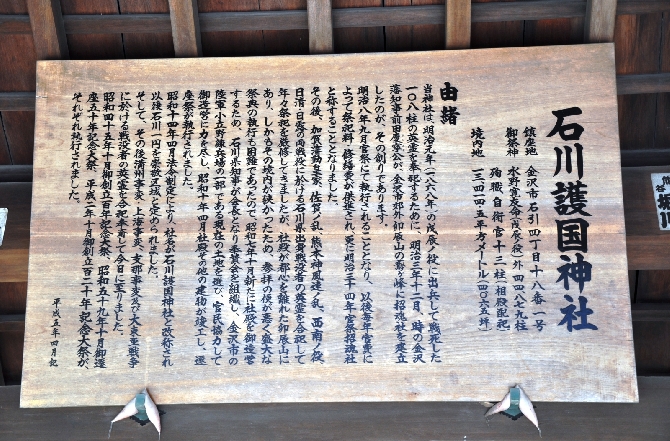 石川護国神社
鎮座地　金沢市石引四丁目十八番一号
御祭神　水野寛友命(戊辰ノ役)外四四八七九柱
殉職自衛官十三柱相殿配祀
境内地　一三四二四五平方メートル(四〇六五坪)
由緒
当神社は、明治元年(一八六八年)の戊辰ノ役に出兵して戦死した
一〇八柱の英霊を奉祀するために、明治三年十二月、時の金沢
藩知事前田慶寧公が、金沢市郊外卯辰山の鳶ヶ峰に招魂社を建立
したのが、その創りであります。
明治八年九月官祭にて執行されることとなり、以後毎年官費に
よって祭祀料・修繕費が保証され、更に明治三十四年官祭招魂社
と称することとなりました。
その後、加賀藩勤王家、佐賀ノ乱、熊本神風連ノ乱、西南ノ役
日清・日露の両戦役に於ける石川県出身戦没者の英霊を合祀して
年々祭祀を厳修してきましたが、社殿が都心を離れた卯辰山に
あり、しかもその境内が狭かったため、参拝の便が悪く盛大な
祭典の執行も困難であったので、昭和七年十月新たに社殿を御造営
するため、石川県知事が会長となり奉賛会を組織し、金沢市の
陸軍小立野練兵場の一部である現在の土地を選び、官民協力して
御造営に力を尽し、昭和十年四月社殿その他の建物が竣工し、遷
座祭が執行されました。
昭和十四年四月法令制定により、社名が石川護国神社と改称され
以後石川一円を崇敬区域と定められました。
そして、その後満州事変・上海事変、支那事変及び大東亜戦争
に於ける戦没者の英霊を合祀申奉して今日に至りました。
昭和四十五年十月御創立百年記念大祭、昭和五十九年十月御遷
座五十年記念大祭、平成二年十月御創立百二十年記念大祭が、
それぞれ執行されました。
平成五年四月記